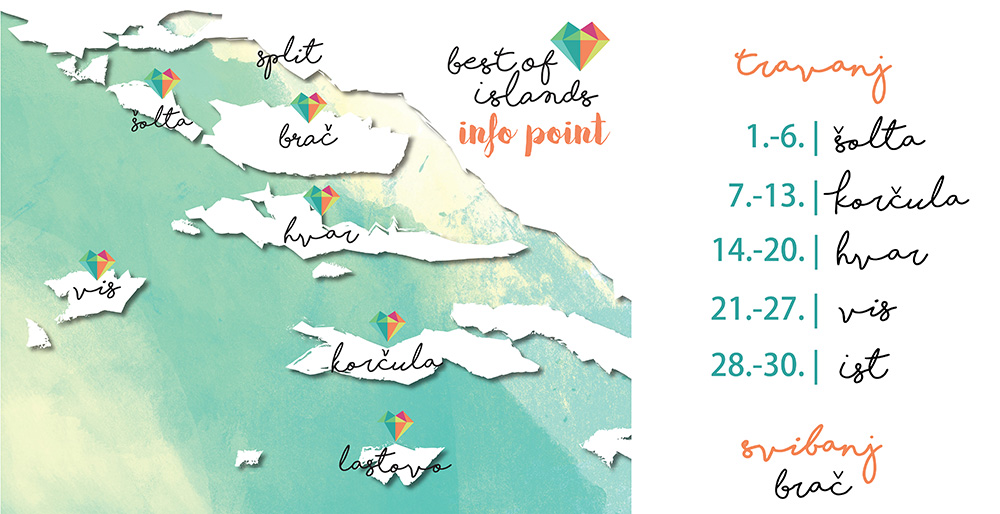 split
best of
islands
info point
šolta
brač
hvar
vis
korčula
lastovo
travanj
1.-6. | šolta
7.-13. | korčula
14.-20. | hvar
21.-27. | vis
28.-30. | ist
svibanj
brač